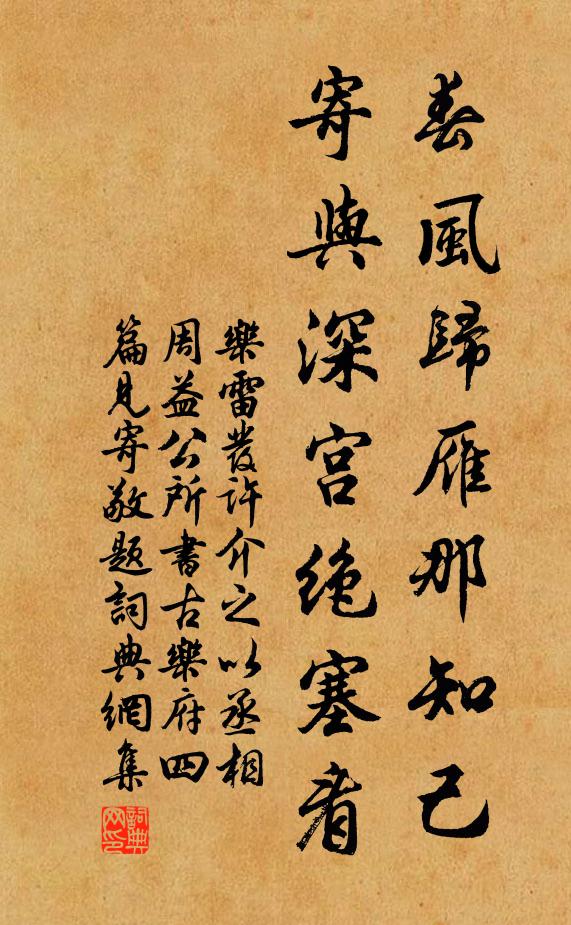 春風歸雁那知己
寄與深宮絶塞看
樂雷發許介之以丞相
周益公所書古樂府四
篇見寄敬題詞典網集
詞典
网印